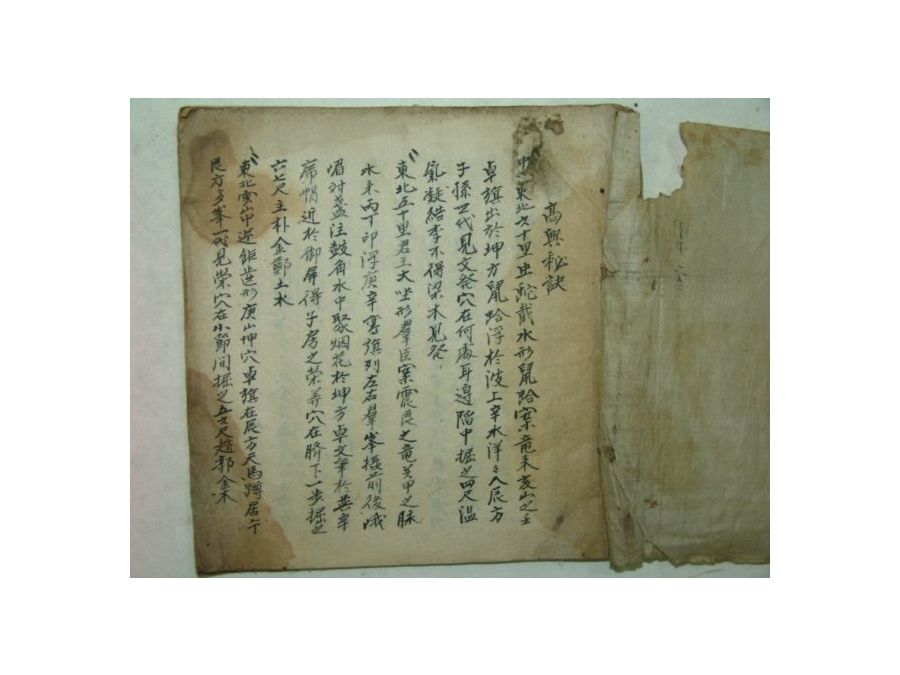 高興秘訣
東北六十里虫蛇截水形鼠蛤案竜来亥山之
卓旗出於坤方鼠蛤浮於波上辛水洋々入辰方
子孫四代見文發穴在何處耳邊陷中掘之四尺溫
氣凝結李不得梁木見發
東北五十里君王大坐形羣臣案震艮之竜 甲之脉
水来丙丁卯浮庚辛 旗列左右羣峯揖前後
眉对盞注鼓角水中聚烟花於坤方卓文筆於 辛
席帽近於御屏得子房之榮 穴在臍下一步掘之
六七尺主朴金鄭土水
東北 山中 鉅 形庚山坤穴卓旗在辰方天馬蹲居午
艮方 峯一代見榮穴在小節间掘之五六尺趙郭金木